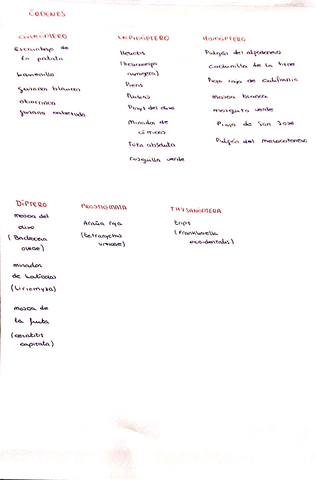 ÓRDENES
COLEÓPTERO
Escarabajo de
la patata
Barrenillo
gusano blanco
otiorrinco
gusano cabezudo
LEPIDÓPTERO
Heliotis
(Helicoverpa
armigera)
Pieris
Plusias
Prays del olivo
Minador de
cítricos
Tuta absoluta
rosquilla verde
HOMÓPTERO
Pulgón del algodonero
Cochinilla de la tizne
Piojo rojo de California
Mosca blanca
mosquito verde
Piojo de San José
Pulgón del melocotonero
DÍPTERO
mosca del
olivo
(Bactrocera
oleae)
minador
de hortícolas
(Liriomyza)
mosca de
la fruta
(ceratitis
capitata)
PROSTIGMATA
Araña roja
(tetranychus
urticae)
THYSANÓPTERA
trips
(Frankliniella
occidentalis)